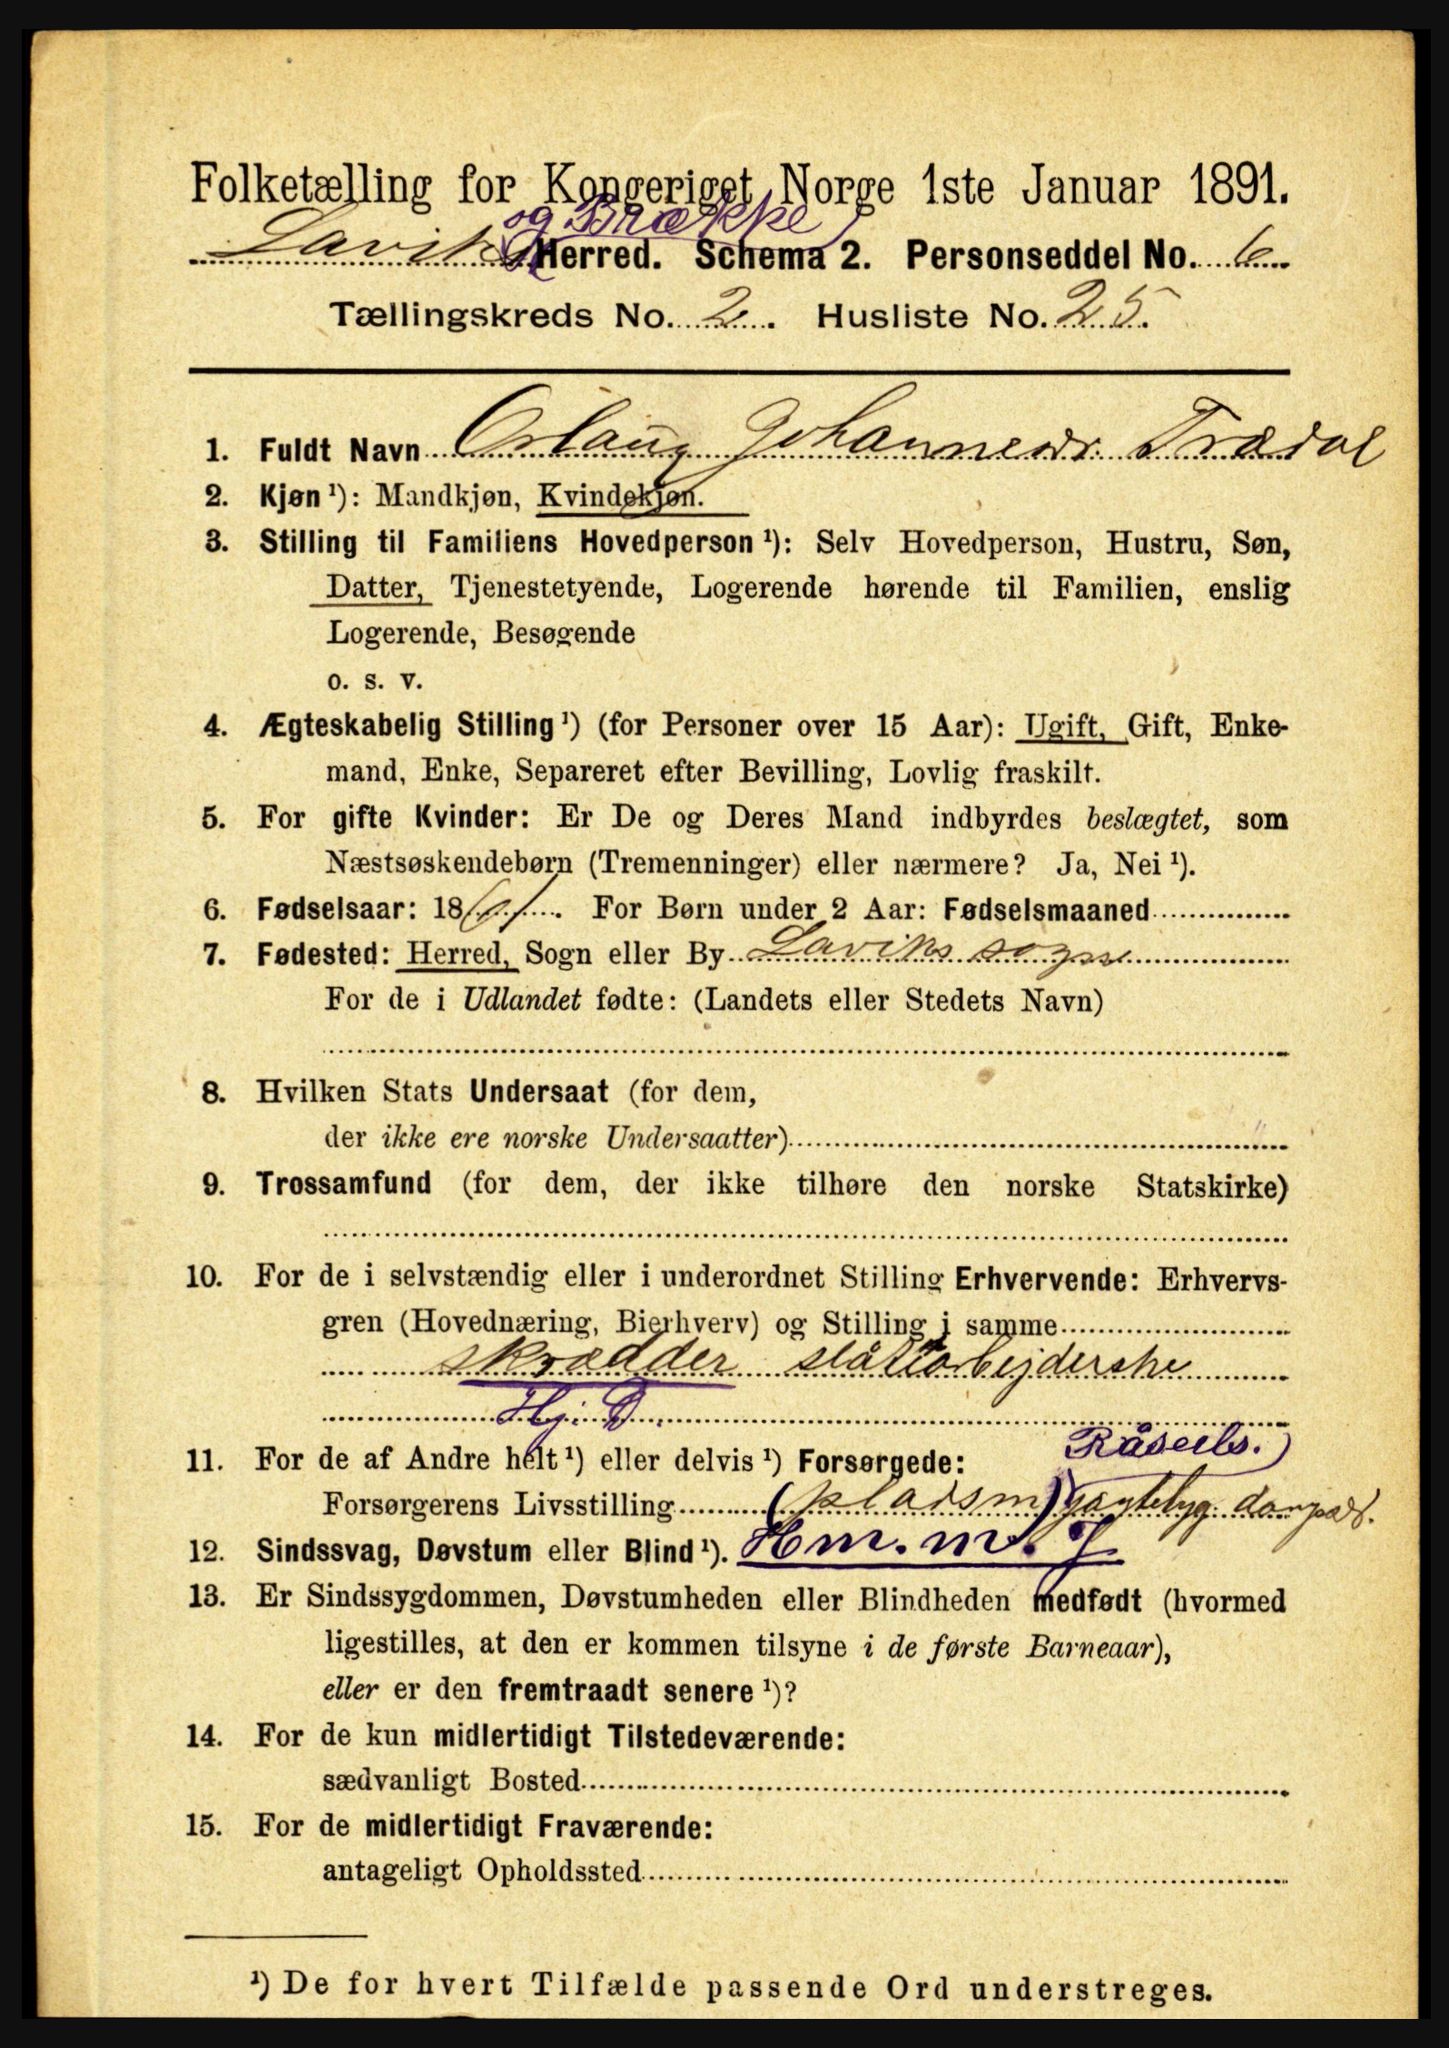 Folketælling for Kongeriget Norge 1ste Januar 1891.
og Brække
Lavik Herred. Schema 2. Personseddel No. 6
Tællingskreds No. 2. Husliste No. 25.
1. Fuldt Navn Oslaug Johannesdr. Trædal
2. Kjøn ¹): Mandkjøn, Kvindekjøn.
3. Stilling til Familiens Hovedperson ¹): Selv Hovedperson, Hustru, Søn,
Datter, Tjenestetyende, Logerende hørende til Familien, enslig
Logerende, Besøgende
o. s. v.
4. Ægteskabelig Stilling ¹) (for Personer over 15 Aar): Ugift, Gift, Enke-
mand, Enke, Separeret efter Bevilling, Lovlig fraskilt.
5. For gifte Kvinder: Er De og Deres Mand indbyrdes beslægtet, som
Næstsøskendebørn (Tremenninger) eller nærmere? Ja, Nei ¹).
6. Fødselsaar: 1861. For Børn under 2 Aar: Fødselsmaaned
7. Fødested: Herred, Sogn eller By Laviks sogn
For de i Udlandet fødte: (Landets eller Stedets Navn)
8. Hvilken Stats Undersaat (for dem,
der ikke ere norske Undersaatter)
9. Trossamfund (for dem, der ikke tilhøre den norske Statskirke)
10. For de i selvstændig eller i underordnet Stilling Erhvervende: Erhvervs-
gren (Hovednæring, Bierhverv) og Stilling i samme
skrædder slåttarbejderske
Hj. D.
11. For de af Andre helt ¹) eller delvis ¹) Forsørgede: Råseilb.)
Forsørgerens Livsstilling (pladsm)
12. Sindssvag, Døvstum eller Blind ¹). Hm. m. J.
13. Er Sindssygdommen, Døvstumheden eller Blindheden medfødt (hvormed
ligestilles, at den er kommen tilsyne i de første Barneaar),
eller er den fremtraadt senere ¹)?
14. For de kun midlertidigt Tilstedeværende:
sædvanligt Bosted
15. For de midlertidigt Fraværende:
antageligt Opholdssted
¹) De for hvert Tilfælde passende Ord understreges.